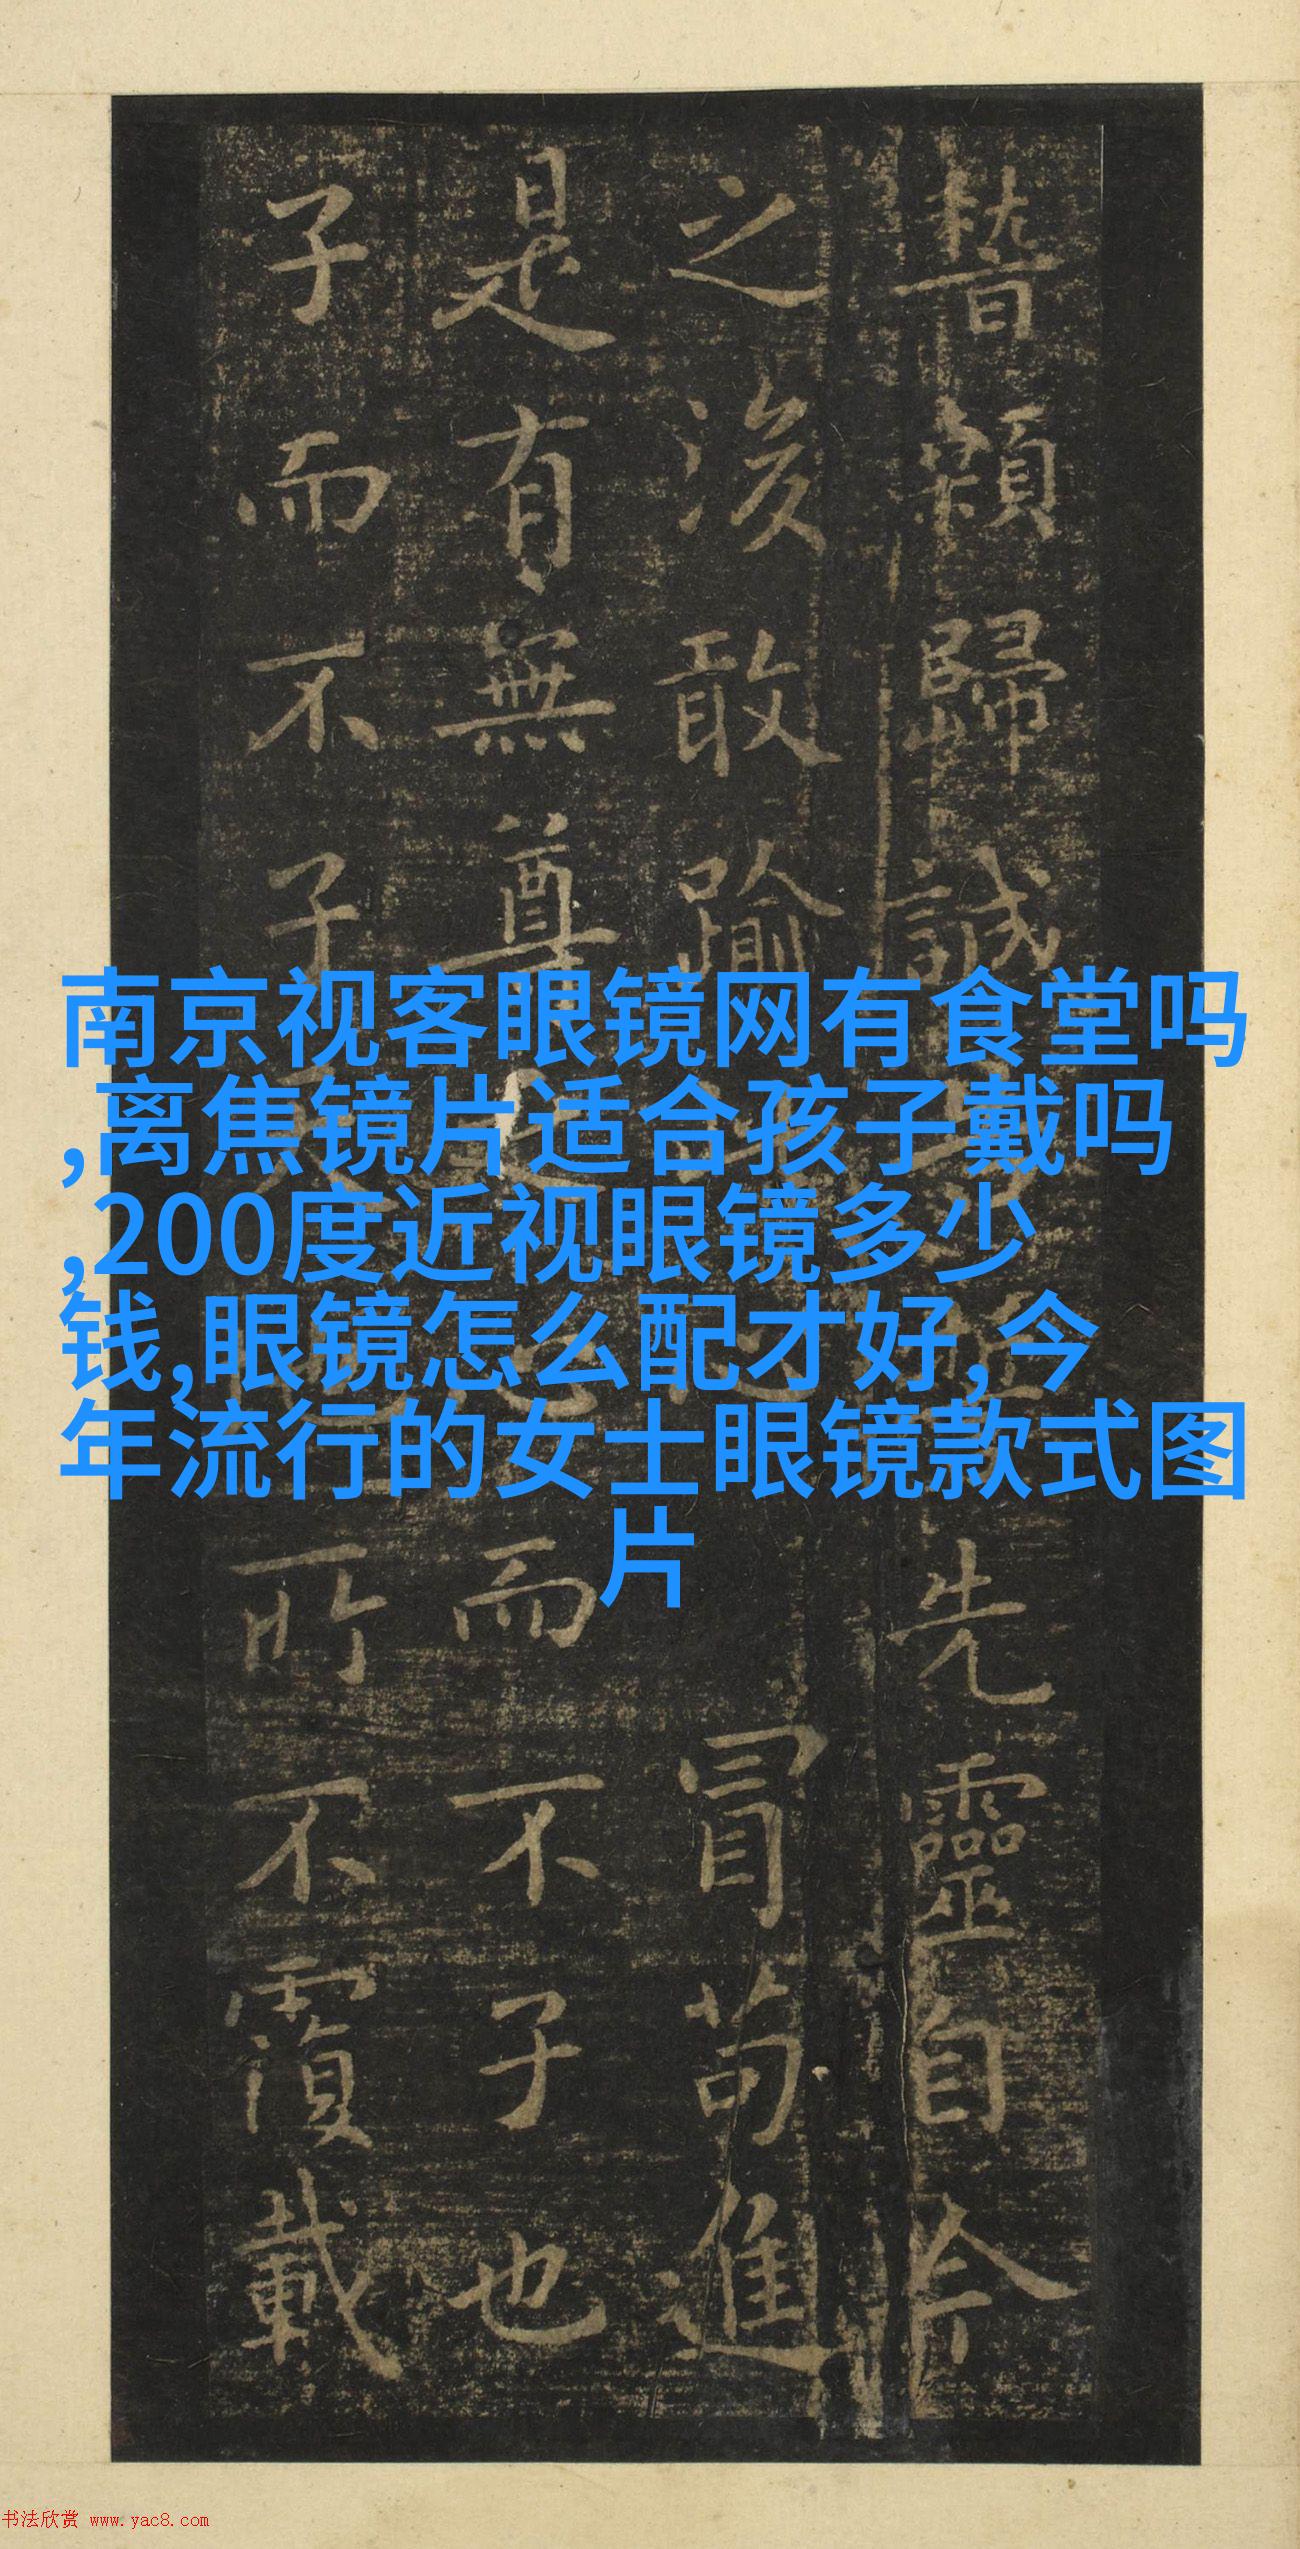 顙歸誠先靈自今
之後敢踰冒苟進
是有無尊而不子也
子而不子所不覆載
南京视客眼镜网有食堂吗
,离焦镜片适合孩子戴吗
,200度近视眼镜多少
钱,眼镜怎么配才好,今
年流行的女士眼镜款式图
片
书法欣赏 www.yac8.com